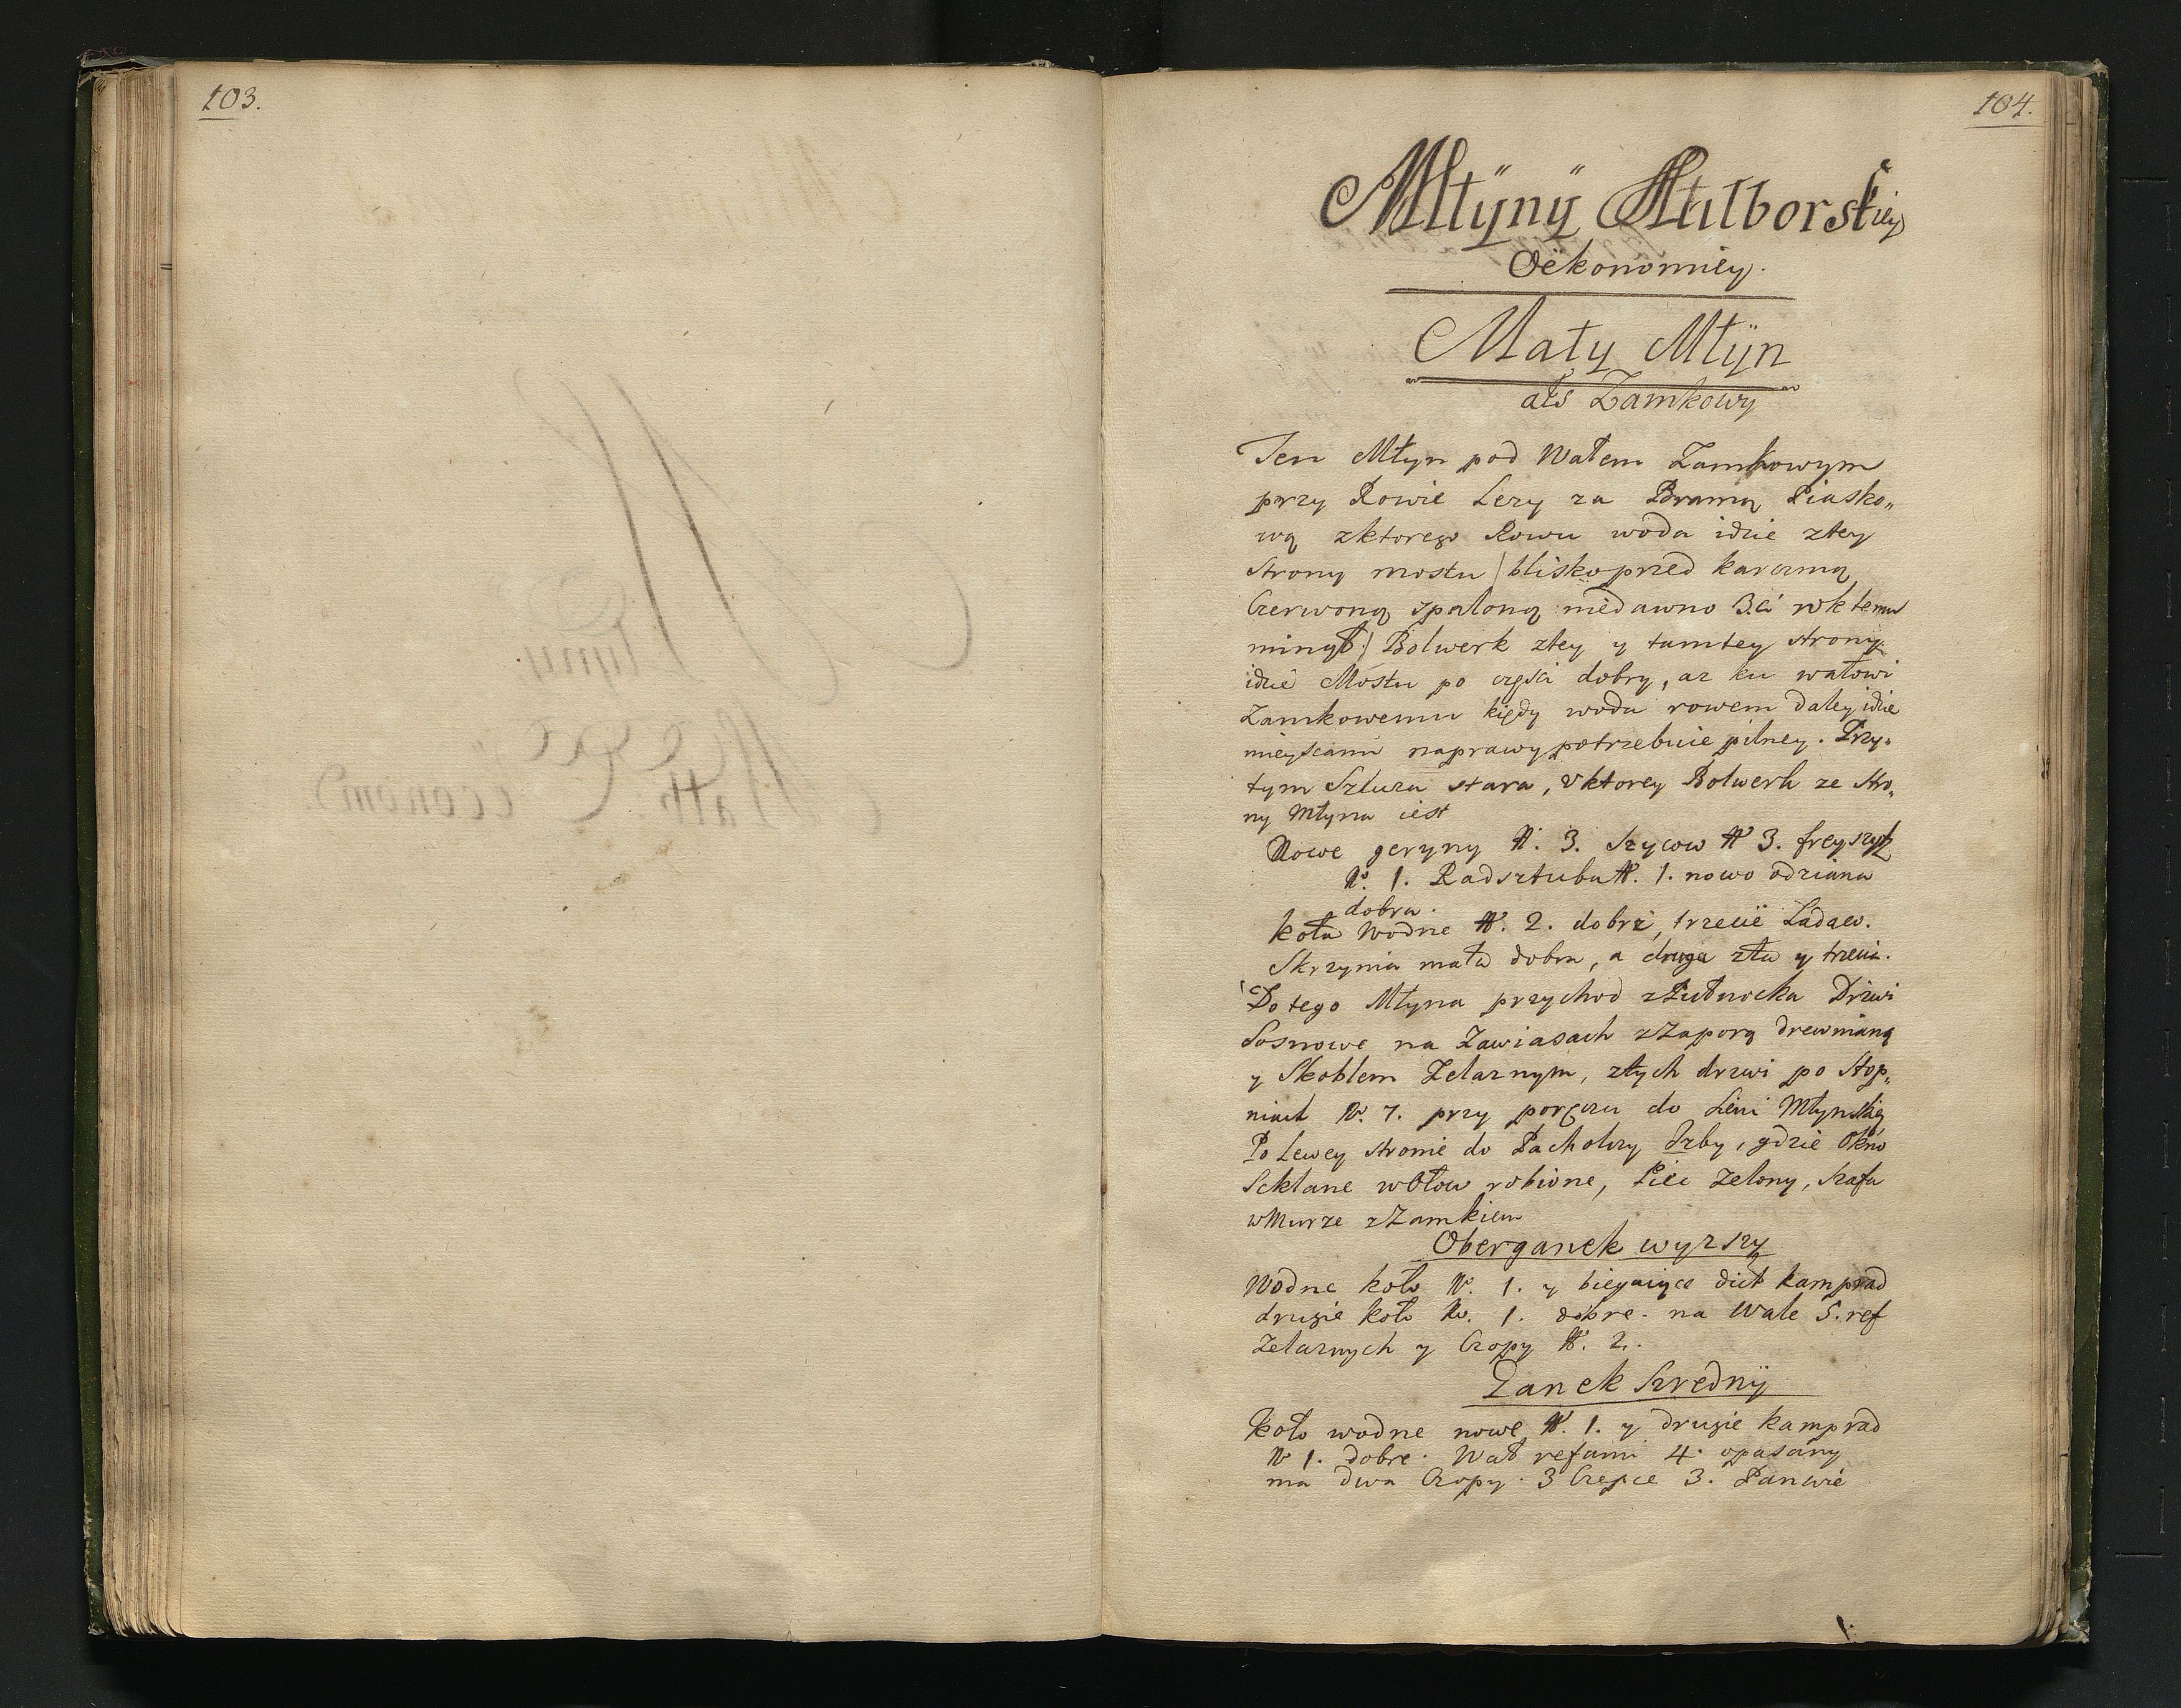 103.
104.
Młÿnÿ Malborskiey
Oekonomiey.
Mały Młÿn
als Zamkowy
Ten Młyn pod Wałem Zamkowym
przy Rowie Lezy za Bramą Piasko„
wą zktorego Rowu woda idzie ztey
Strony mostu / blisko przed karczmą
Czerwoną spaloną niedawno 3.ci rok temu
minął / Bolwerk ztey y tamtey strony
idzie Mostu po części dobry, az ku wałowi
Zamkowemu kiędy woda rowem daley idzie
mieyscami naprawy potrzebuie pilney. Przy„
tym Szluza stara, v ktorey Bolwerk ze stro„
ny Młyna iest
Nowe geryny N. 3. Szycow N 3. freyszytz
N. 1. Radsztuba N. 1. nowo odziana
dobra.
Koła Wodne N. 2. dobre, trzecie Ladaco.
Skrzynia mała dobra, a druga zła y trzecia.
Do tego Młyna przychod z Drzwi
Sosnowe na Zawiasach z Zaporą drewnianą
y Skoblem Zelaznym, ztych drzwi po Stop„
niach N. 7. przy poręczu do Sieni Młynskiey
Po Lewey stronie do Pacholczy Izby, gdzie Okno
Szklane wOłow robione, Piec Zelony, Szafa
wMurze zZamkiem
Oberganek wyzszy
Wodne koło N. 1. y biegaiące dict kamprad
drugie koło No. 1. dobre. na Wale 5. ref
Zelaznych y Czopy N. 2.
Ganek Szrednÿ
Koło wodne nowe N. 1. y drugie kamprad
N 1. dobre. Wał refami 4. opasany
ma dwa Czopy. 3 3. Panwie